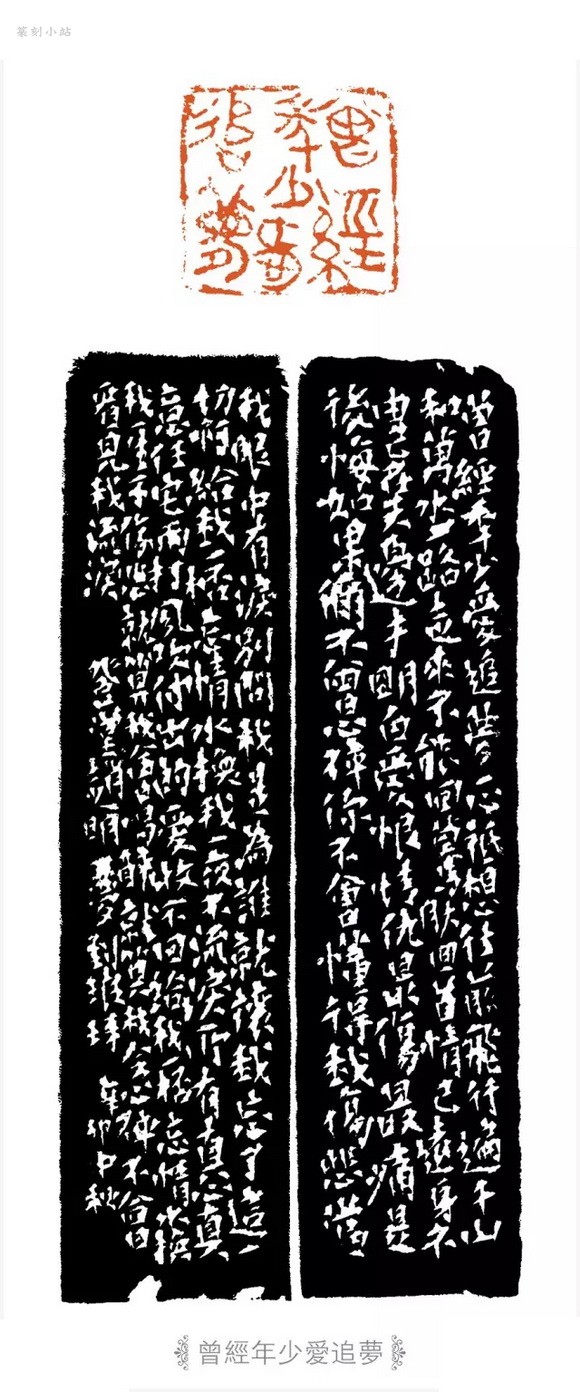 篆刻小站
曾經
年少愛
追夢
曾經年少愛追夢一心祇想往前飛行遍千山
和萬水一路走來不能回驀然回首情已遠身不
由己在天邊才明白愛恨情仇最傷最痛是
後悔如果你不曾心碎你不會懂得我傷悲當
我眼中有淚別問我是為誰就讓我忘了這一
切啊給我一杯忘情水換我一夜不流淚所有真心真
意任它雨打風吹付出的愛收不回給我一杯忘情水換
我一生不傷悲就算我會喝醉就算我會心碎不會
看見我流淚 夢刻 辛卯中秋
曾經年少愛追夢